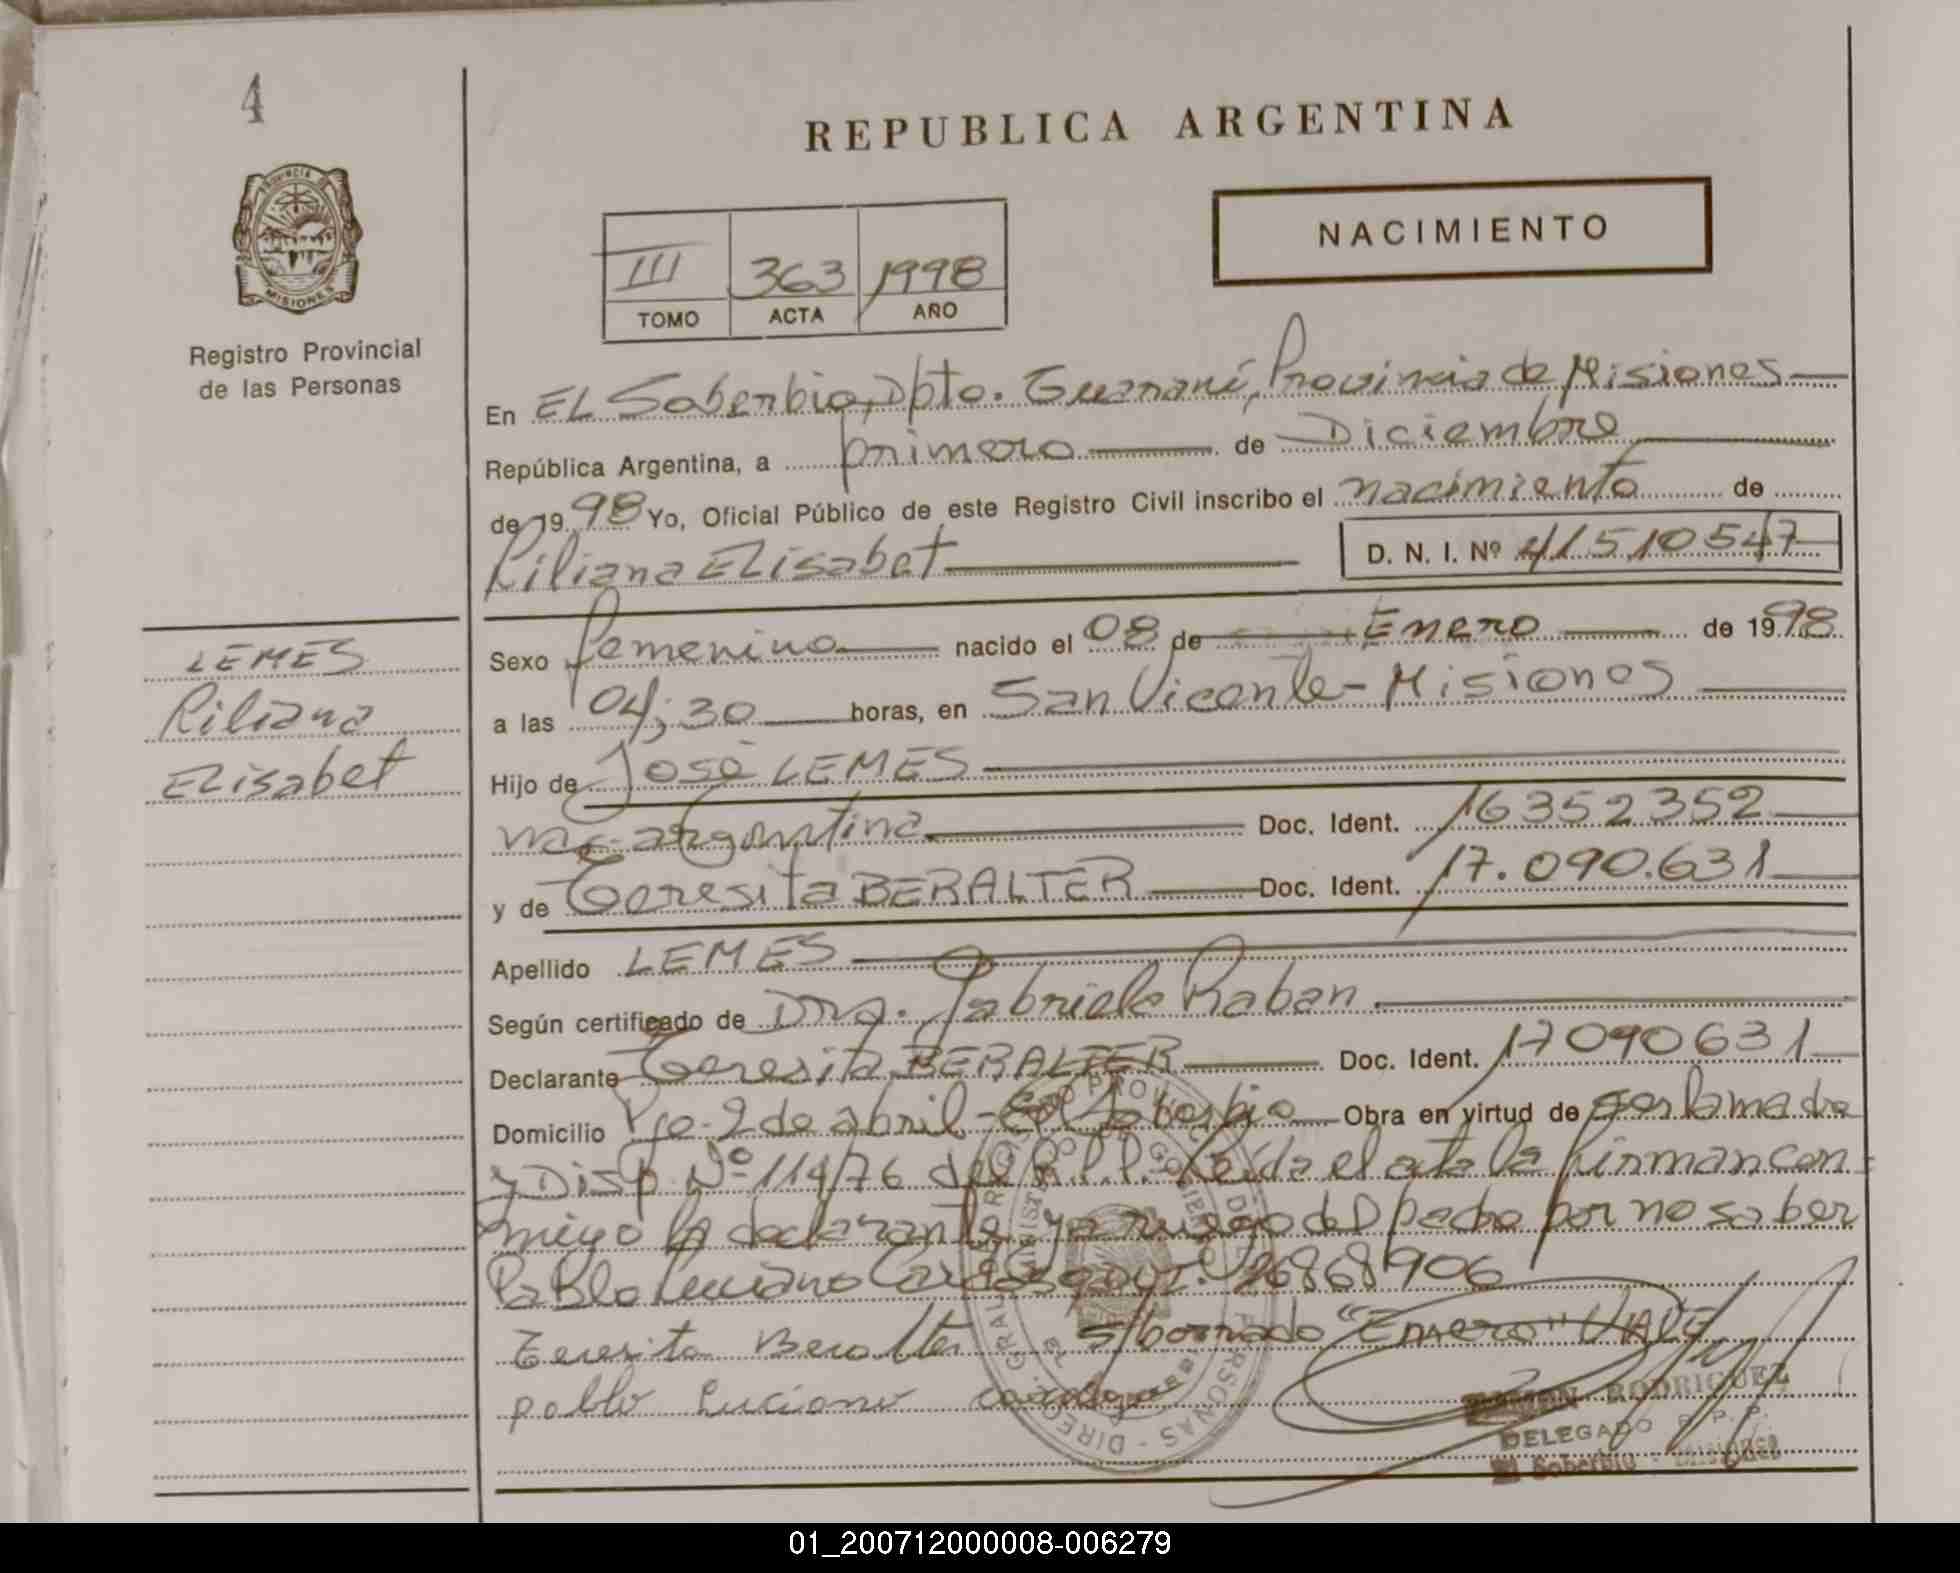 4
PROVINCIA DE
MISIONES
Registro Provincial
de las Personas
REPUBLICA ARGENTINA
NACIMIENTO
III 363 1998
TOMO ACTA AÑO
En EL Soberbio, Dpto. Guaraní, Provincia de Misiones
República Argentina, a primero de Diciembre
de 19 98 Yo, Oficial Público de este Registro Civil inscribo el nacimiento de
Liliana Elisabet D. N. I. Nº 41510547
LEMES
Liliana
Elisabet
Sexo femenino nacido el 08 de Enero de 19 98
a las 04;30 horas, en San Vicente - Misiones
Hijo de José LEMES
nac. argentina Doc. Ident. 16352352
y de Teresita BERALTER Doc. Ident. 17.090.631
Apellido LEMES
Según certificado de Dra. Gabriela Raban
Declarante Teresita BERALTER Doc. Ident. 17090631
Domicilio Pje. 2 de abril - El Soberbio Obra en virtud de ser la madre
y Disp. Nº 114/76 del R.P.P. Leída el acta la firman con-
migo la declarante y a ruego del padre por no saber
Pablo Luciano 26868906
Teresita Beralter S/borrado "Enero" VALE
pablo Luciano
RODRIGUEZ
DELEGADO R. P. P.
El Soberbio - Misiones
01_200712000008-006279